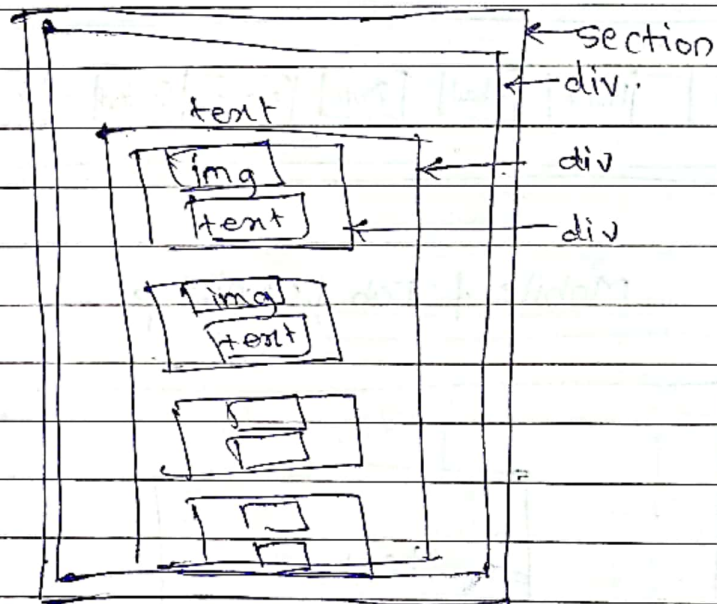 section
div.
text
div
img
text
div
img
text